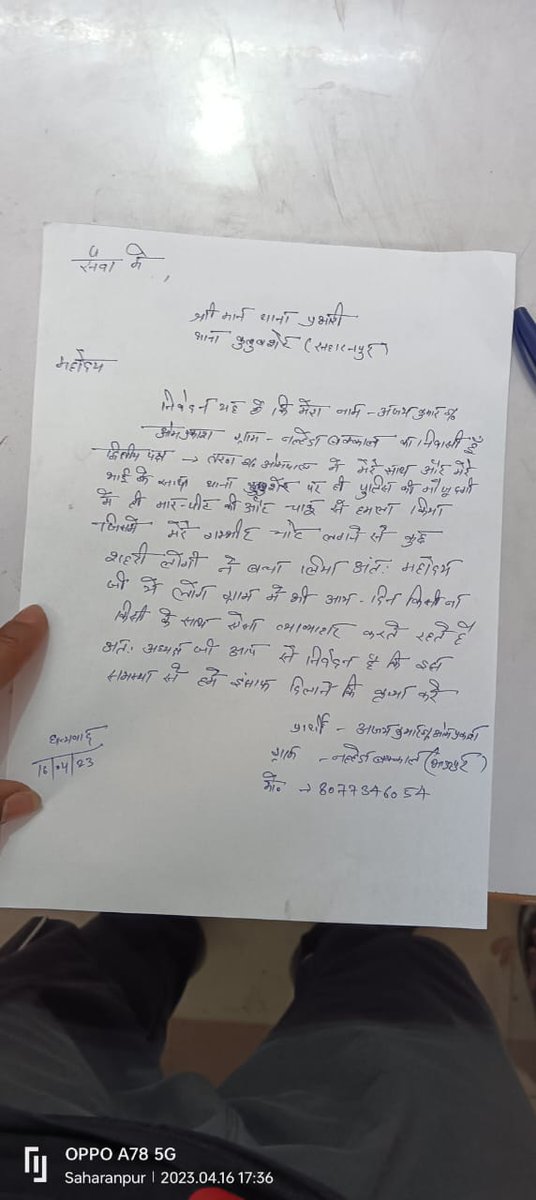 सेवा में,
श्री मान थाना प्रभारी
थाना कुतुबशेर (सहारनपुर)
महोदय
निवेदन यह है कि मेरा नाम - अजय कुमार S/o
ओमप्रकाश ग्राम - नल्हेडा बक्काल का निवासी हूँ
द्वितीय पक्ष → S/o ओमपाल ने मेरे साथ और मेरे
भाई के साथ थाना कुतुबशेर पर ही पुलिस की मौजूदगी
में ही मार-पीट की और चाकू से हमला किया
जिसमें मेरे गम्भीर चोट लगने से कुछ
शहरी लोगों ने बचा लिया अंत: महोदय
जी ये लोग ग्राम में भी आय-दिन किसी ना
किसी के साथ ऐसा करते रहते है
अतः अध्यक्ष जी आप से निवेदन है कि इस
समस्या से हमें इंसाफ दिलाने कि कृप्या करे
प्रार्थी - अजय कुमार S/o ओमप्रकाश
ग्राम - नल्हेडा बक्काल
मो० → 8077346054
धन्यवाद
16/04/23
OPPO A78 5G
Saharanpur | 2023.04.16 17:36